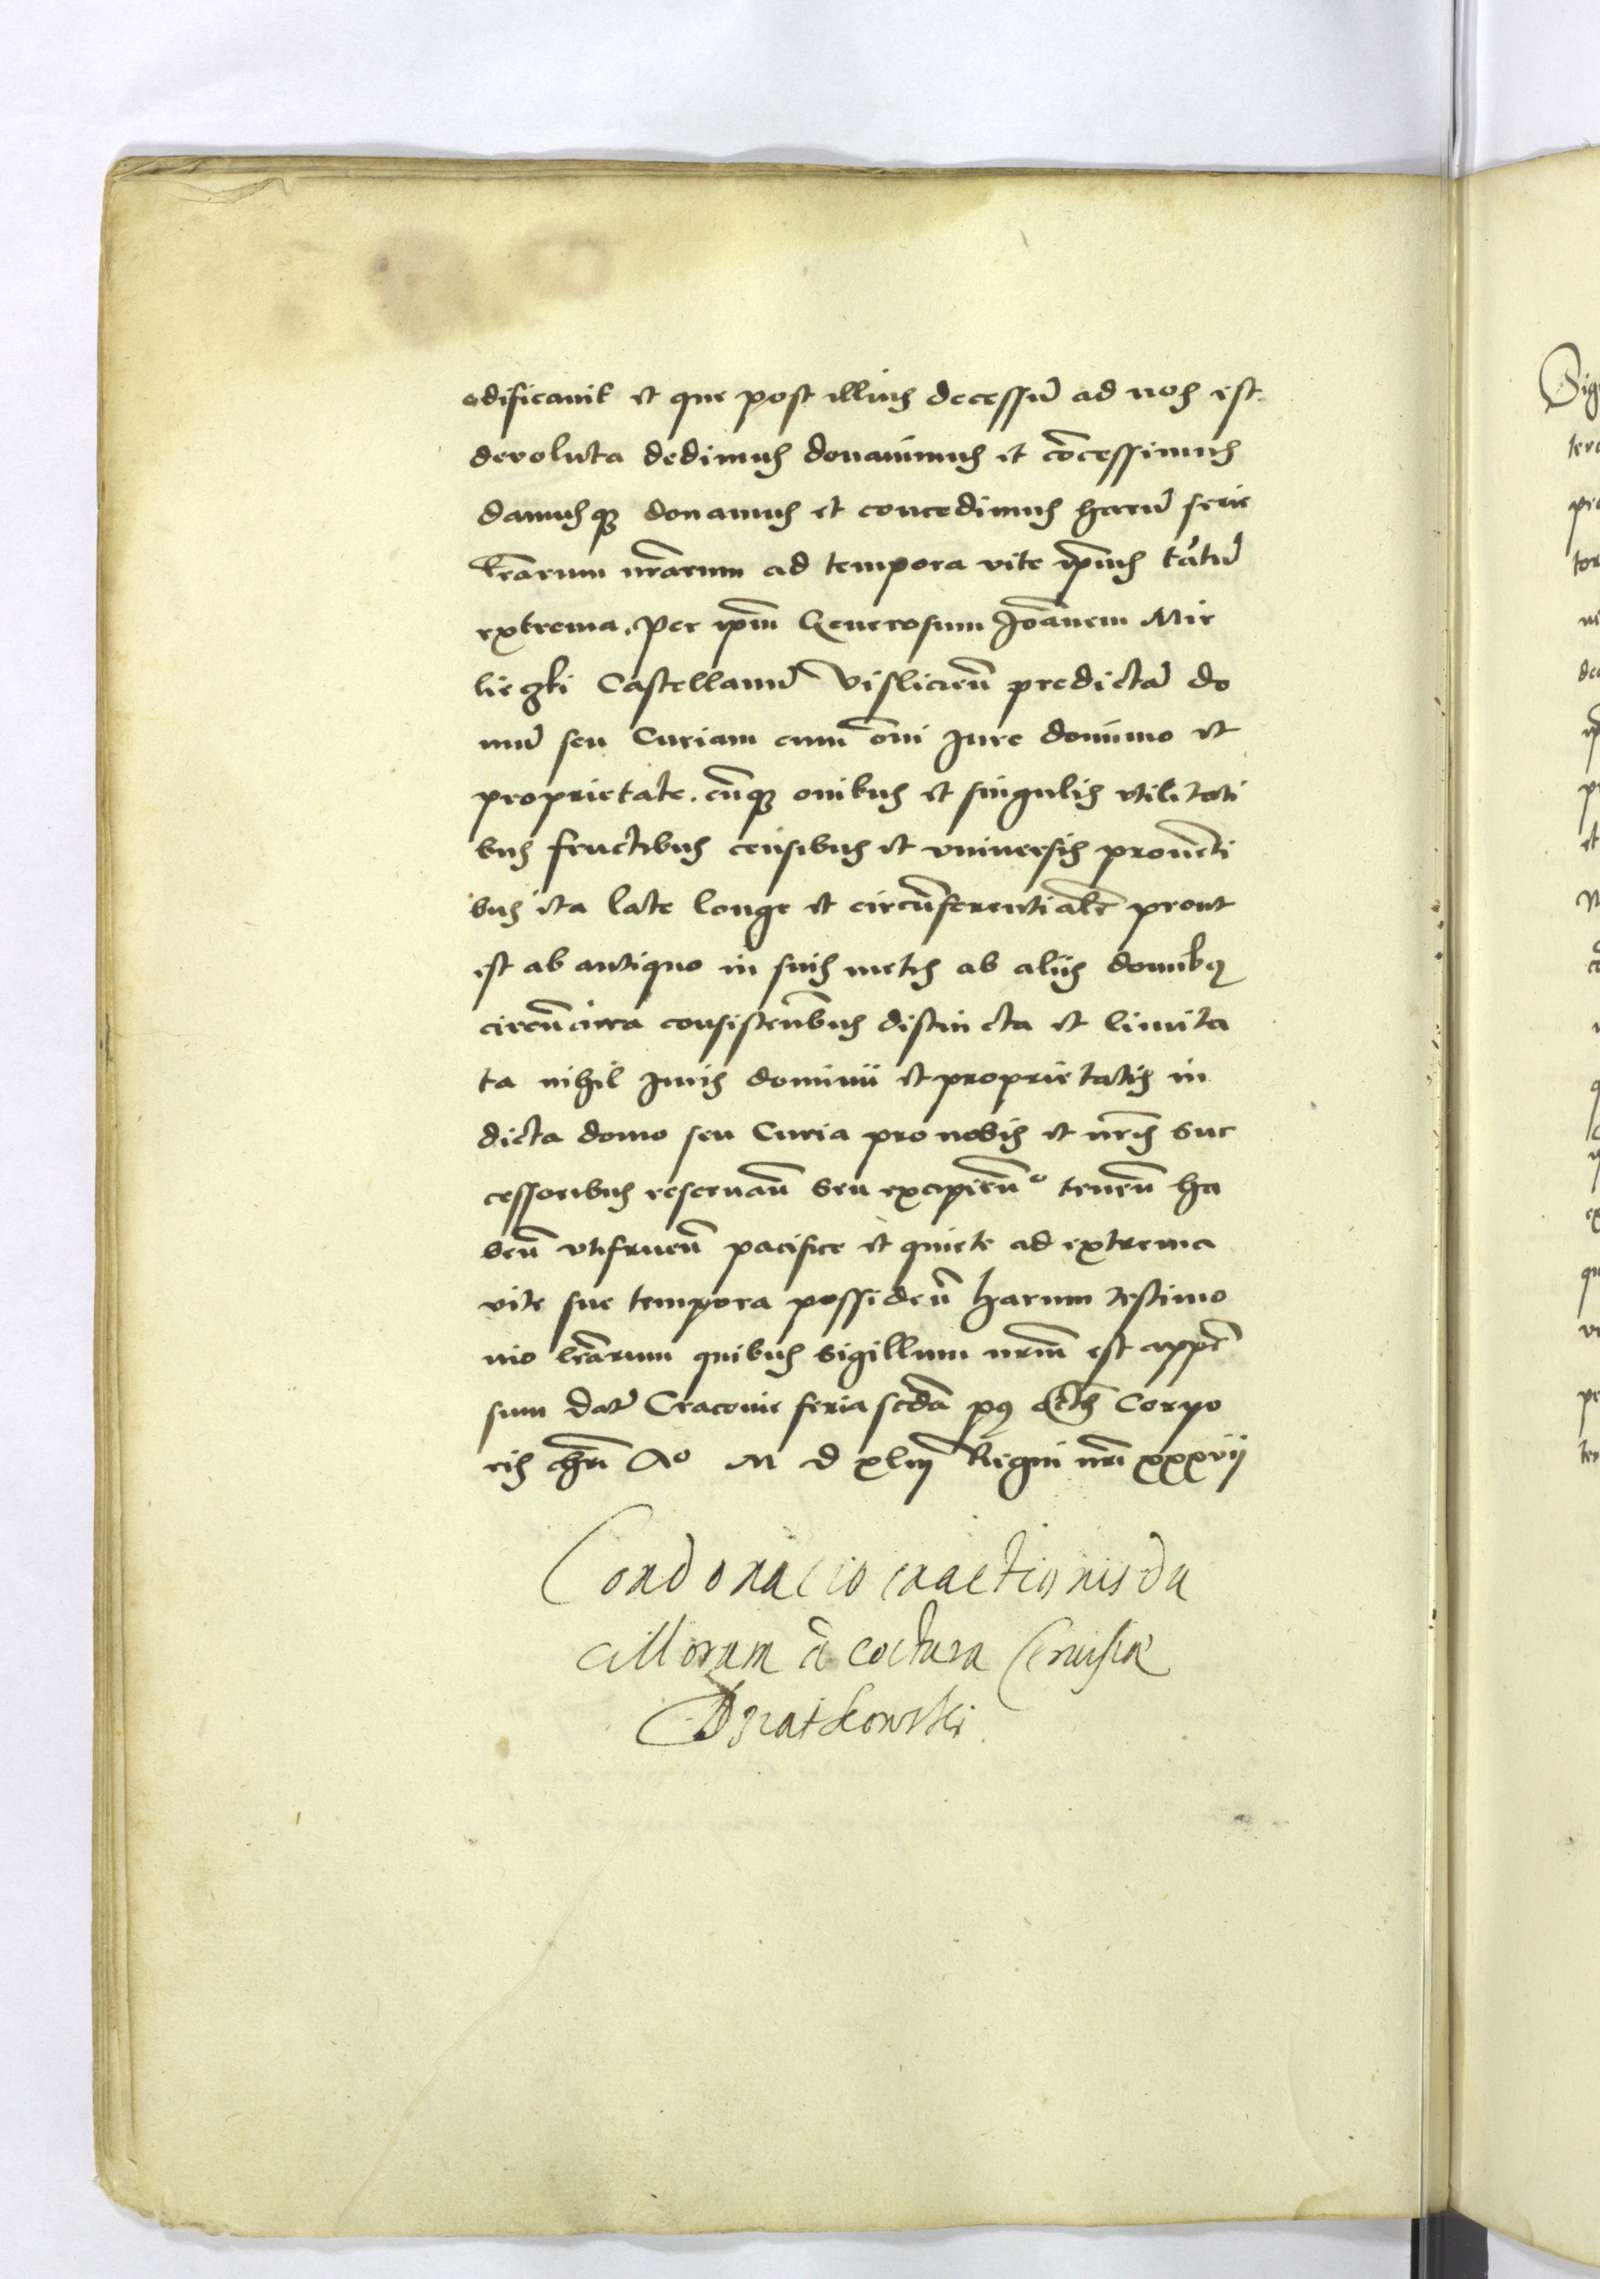 edificauit et que post illius decessū ad nos est
devoluta dedimus donauimus et cōcessimus
damusq donamus et concedimus harū serie
lr̄arum nr̄arum ad tempora vite ip̄ius tātū
extrema. per ip̄m Generosum Joān̄em Mie
lieczki Castellanū Visliciēn̄ predictā do
mū seu Curiam cum om̄i Jure dominio et
proprietate. cūq om̄ibus et singulis vtilitati
bus fructibus censibus et vniuersis prouēti
bus ita late longe et circūferentialr̄ prout
est ab antiquo in suis metis ab alijs domibq
circūcirca consisten̄bus distincta et limita
ta nihil Juris dominij et proprietatis in
dicta domo seu Curia pro nobis et nr̄is suc
cessoribus reseruan̄ seu excipien̄o tenen̄ ha
ben̄ vtifruen̄ pacifice et quiete ad extrema
vite sue tempora possiden̄ harum testimo
nio lr̄arum quibus sigillum nr̄um est appē
sum dat̄ Cracouie feria scda p9 octs Corpo
ris chr̄i Ao M d xliij Regni nr̄i xxxvij
Condonacio exactionis du
cillorum à coctura Ceruisiae